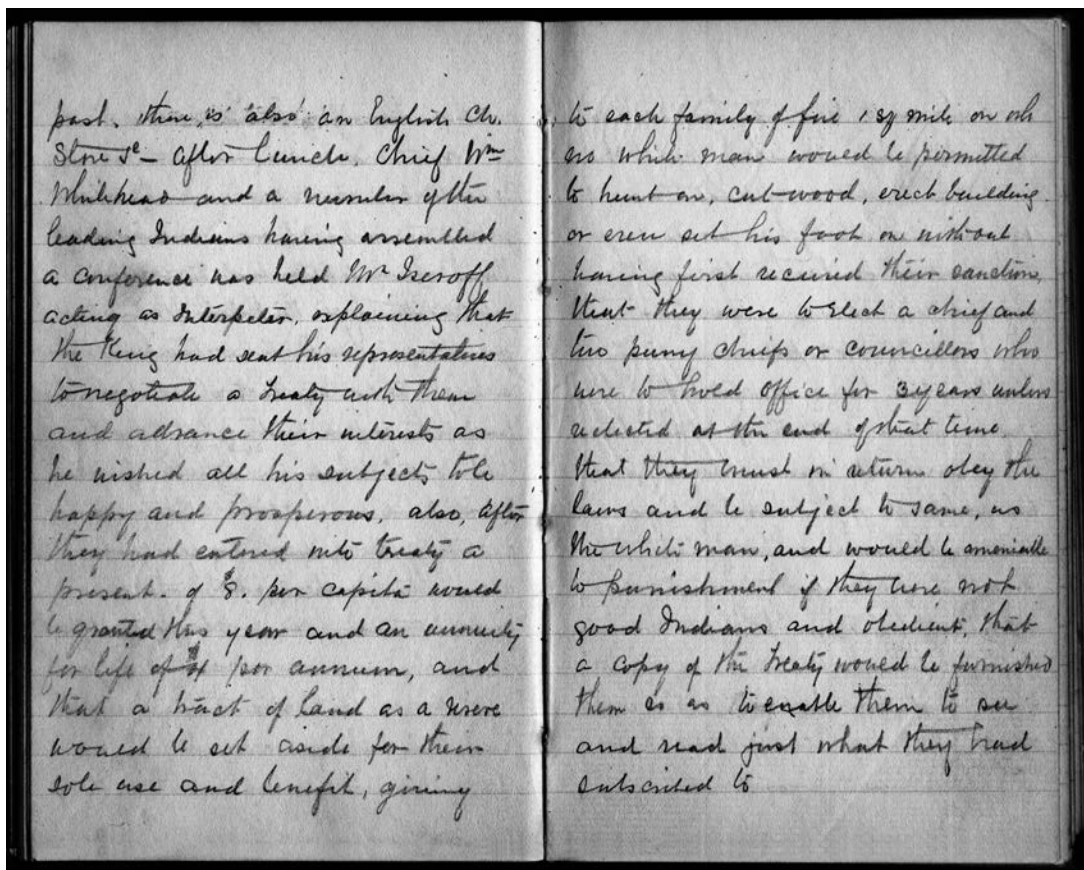 post. there, is also an English Ch.
Store &c - After lunch, Chief Wm
Whitehead and a number of the
leading Indians having assembled
a conference was held Mr Iseroff
acting as Interpeter, explaining that
the King had sent his representatives
to negotiate a Treaty with them
and advance their interests as
he wished all his subjects to be
happy and prosperous. also, after
they had entered into treaty a
present. of $8. per capita would
be granted this year and an annuity
for life of $4 per annum, and
that a tract of Land as a reserve
would be set aside for their
sole use and benefit, giving
to each family of five 1 sq mile on wh
no white man would be permitted
to hunt on, cut wood, erect building
or even set his foot on without
having first received their sanction,
that they were to Elect a chief and
two puny chiefs or councillors who
were to hold office for 3 years unless
relected at the end of that time.
that they must in return obey the
laws and be subject to same, as
the white man, and would be ameniable
to punishment if they were not
good Indians and obedient, that
a copy of the Treaty would be furnished
them so as to enable them to see
and read just what they had
subscribed to